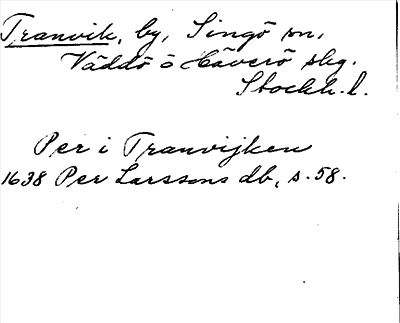 Tranvik, by, Singö sn,
Väddö o Häverö skg.
Stockh. l.
Per i Tranvijken
1638 Per Larssons db, s. 58.